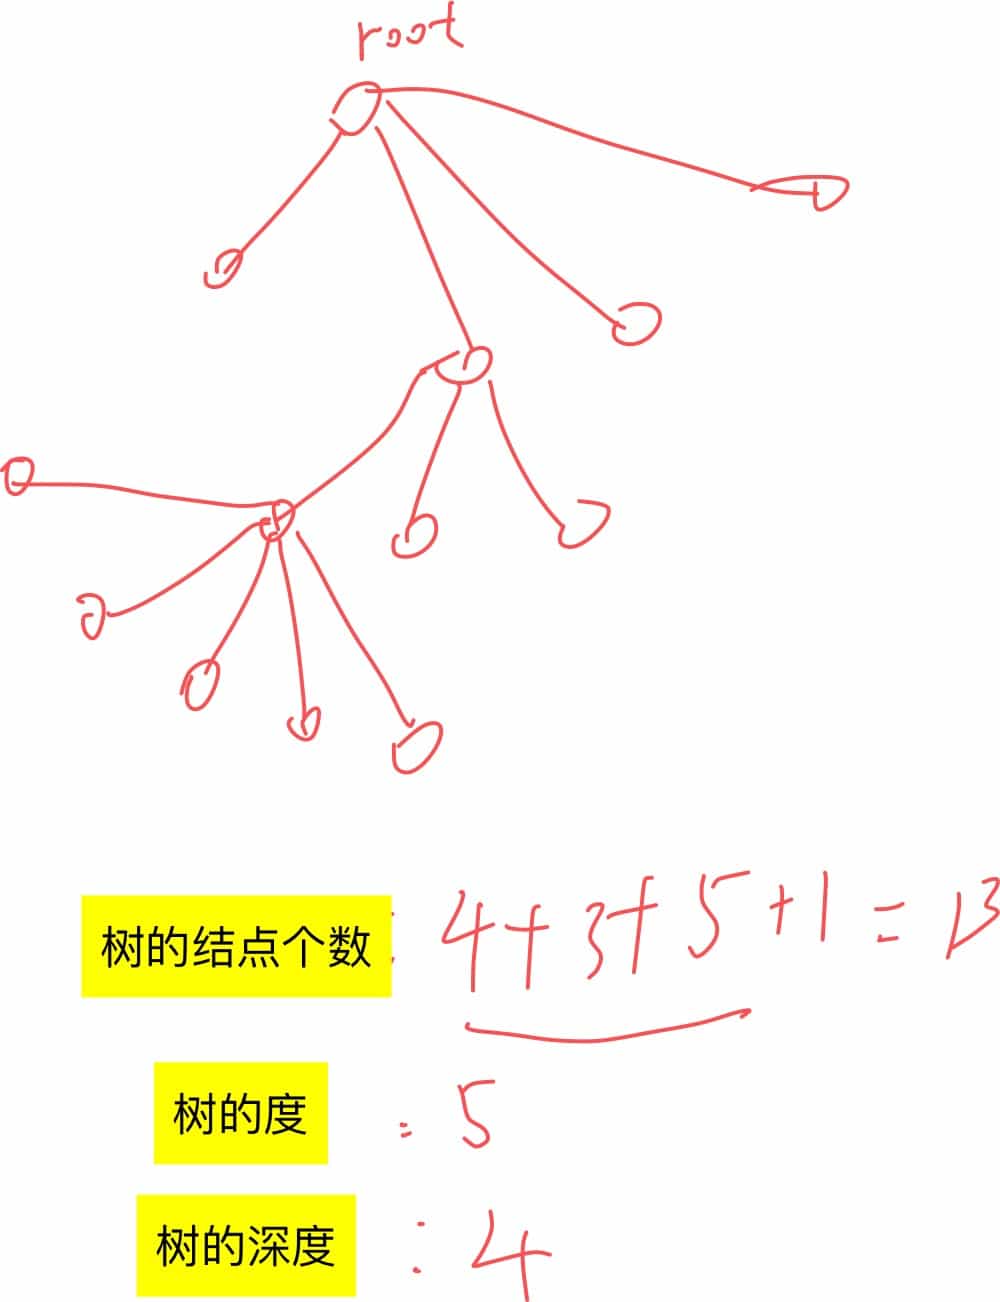 root
树的结点个数: 4+3+5+1=13
树的度: 5
树的深度: 4